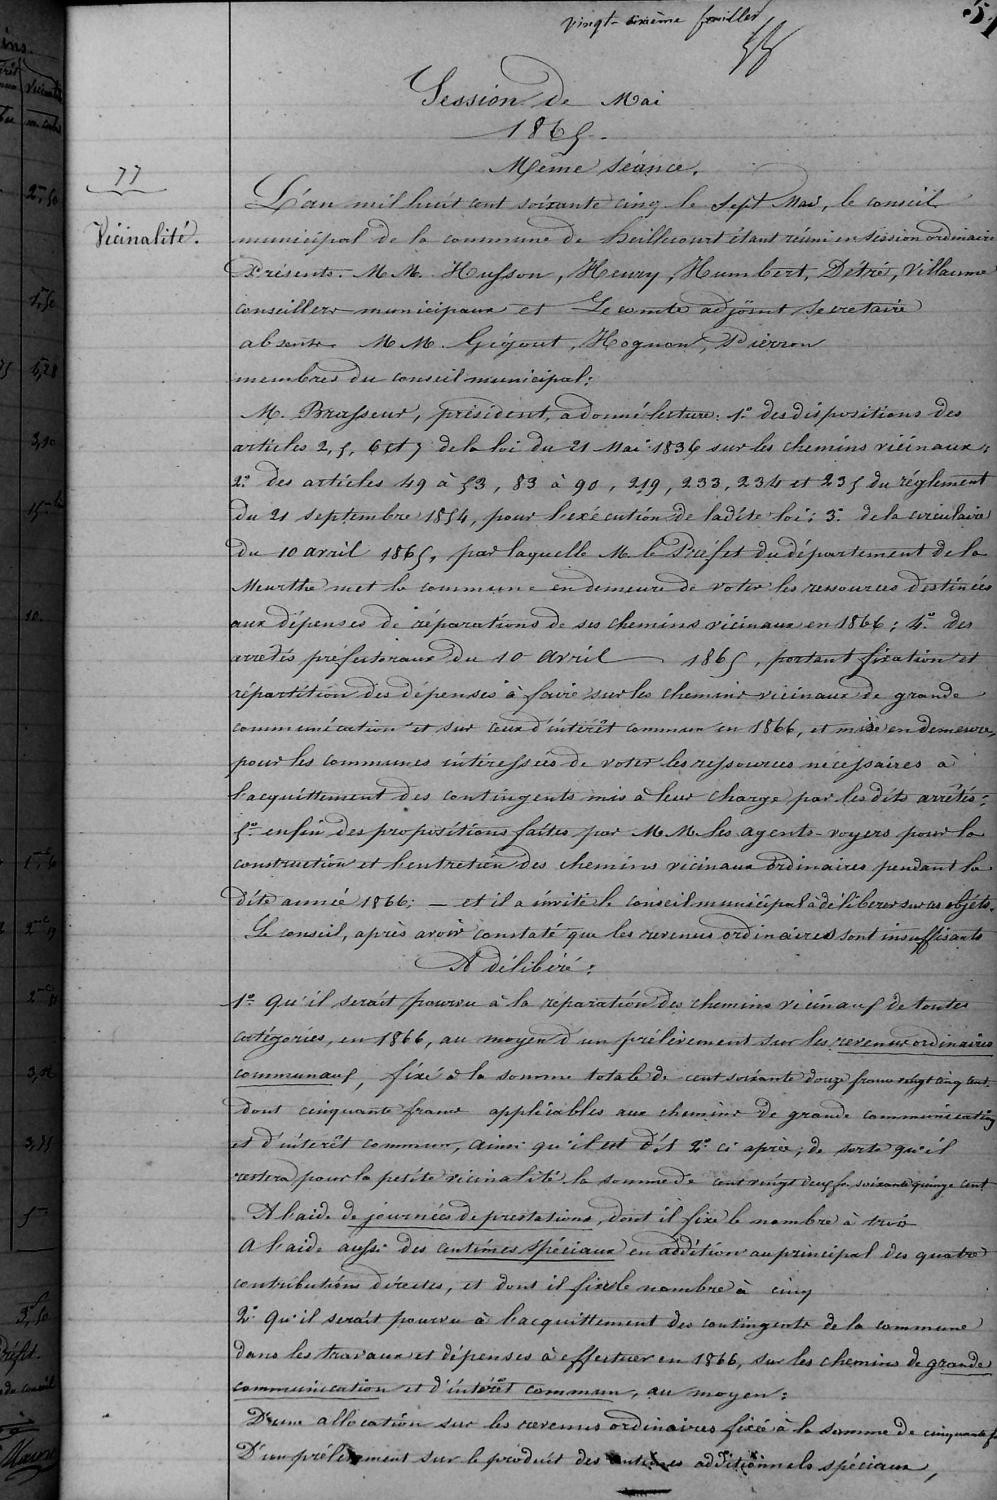 vingt-sixième feuillet
51
Session de Mai
1865.
Même séance.
77
Vicinalité.
L'an mil huit cent soixante cinq le sept Mai, le conseil
municipal de la commune de heillecourt étant réuni en session ordinaire
Présents. M M. Husson, Henry, Humbert, Détré, Villaume
conseillers municipaux et Lecomte adjoint secretaire
absents. M M. Gégout, Hognon, Pierron
membres du conseil municipal:
M. Brasseur, président, a donné lecture: 1° des dispositions des
articles 2, 5, 6 et 7 de la loi du 21 Mai 1836 sur les chemins vicinaux;
2° des articles 49 à 53, 83 à 90, 219, 233, 234 et 235 du règlement
du 21 septembre 1854, pour l'exécution de ladite loi; 3° de la circulaire
du 10 avril 1865, par laquelle M. le Préfet du département de la
Meurthe met la commune en demeure de voter les ressources destinées
aux dépenses de réparations de ses chemins vicinaux en 1866; 4° des
arretés préfectoraux du 10 avril 1865, portant fixation et
répartition des dépenses à faire sur les chemins vicinaux de grande
communication et sur ceux d'intérêt commun en 1866, et mise en demeure,
pour les communes intéressées de voter les ressources nécessaires à
l'acquittement des contingents mis à leur charge par les dits arrêtés;
5° enfin des propositions faites par M M les agents-voyers pour la
construction et l'entretien des chemins vicinaux ordinaires pendant la
dite année 1866; — et il a invité le conseil municipal à délibérer sur ces objets.
Le conseil, après avoir constaté que les revenus ordinaires sont insuffisants
A délibéré:
1° qu'il serait pourvu à la réparation des chemins vicinaux de toutes
catégories, en 1866, au moyen d'un prélèvement sur les revenus ordinaires
communaux, fixé à la somme totale de cent soixante douze francs vingt cinq cent.
dont cinquante francs applicables aux chemins de grande communication
et d'intérêt commun, ainsi qu'il est dit 2° ci après; de sorte qu'il
restera pour la petite vicinalité la somme de cent vingt deux fr. soixante quinze cent
A l'aide de journées de prestations, dont il fixe le nombre à trois
A l'aide aussi des centimes spéciaux en addition au principal des quatre
contributions directes, et dont il fixe le nombre à cinq
2° Qu'il serait pourvu à l'acquittement des contingents de la commune
dans les travaux et dépenses à effectuer en 1866, sur les chemins de grande
communication et d'intérêt commun, au moyen:
D'une allocation sur les revenus ordinaires fixée à la somme de cinquante f
D'un prélèvement sur le produit des centimes additionnels spéciaux,